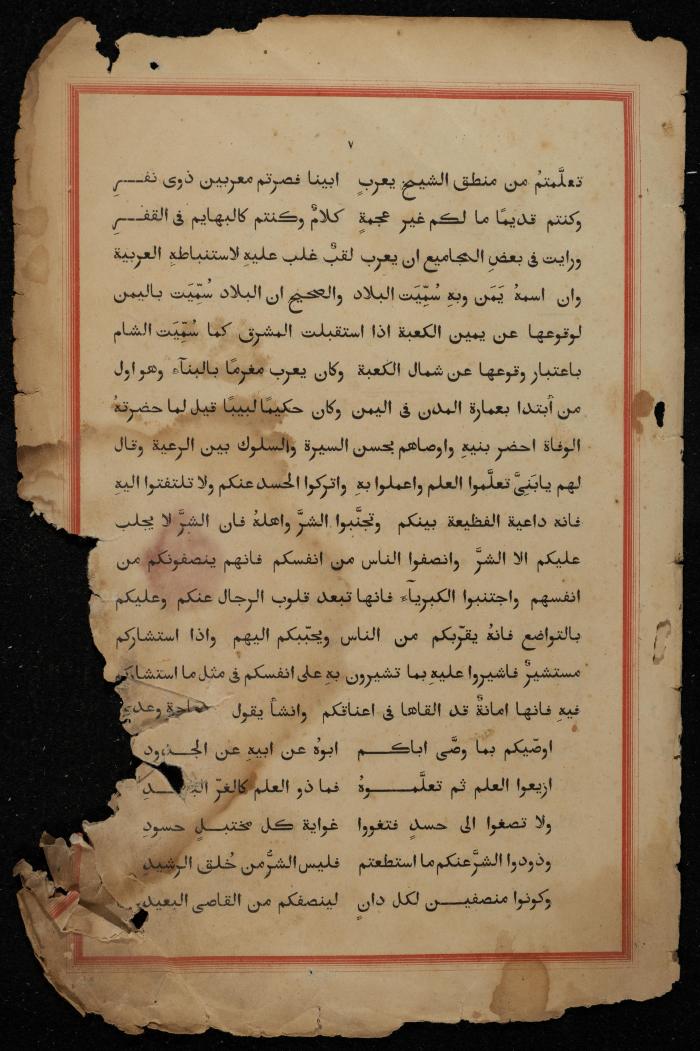 ٧
تعلَّمتمُ من منطق الشيخ يعربٍ ابينا فصرتم معربين ذوى نفـــرِ
وكنتم قديمًا ما لكم غير عجمةٍ كلامٌ وكنتم كالبهايم فى القفــرِ
ورايت فى بعض المجاميع ان يعرب لقبٌ غلب عليهِ لاستنباطهِ العربية
وان اسمهُ يَمَن وبهِ سُمِّيَت البلاد والصحيح ان البلاد سُمِّيَت باليمن
لوقوعها عن يمين الكعبة اذا استقبلت المشرق كما سُمِّيَت الشام
باعتبار وقوعها عن شمال الكعبة وكان يعرب مغرمًا بالبنآء وهو اول
من أبتدا بعمارة المدن فى اليمن وكان حكيمًا لبيبًا قيل لما حضرتهُ
الوفاة احضر بنيهِ واوصاهم بحسن السيرة والسلوك بين الرعية وقال
لهم يابَنِىَّ تعلَّموا العلم واعملوا بهِ واتركوا الحسد عنكم ولا تلتفتوا اليهِ
فانه داعية الفظيعة بينكم وتجنَّبوا الشرَّ واهلهُ فان الشرَّ لا يجلب
عليكم الا الشرَّ وانصفوا الناس من انفسكم فانهم ينصفونكم من
انفسهم واجتنبوا الكبريآء فانها تبعد قلوب الرجال عنكم وعليكم
بالتواضع فانهُ يقرّبكم من الناس ويحبّبكم اليهم واذا استشاركم
مستشيرٌ فاشيروا عليهِ بما تشيرون بهِ على انفسكم فى مثل ما استشاركم
فيهِ فانها امانةٌ قد القاها فى اعناقكم وانشأ يقول
اوصّيكم بما وصَّى اباكـــم ابوهُ عن ابيهِ عن الجـدود
ازيعوا العلم ثم تعلَّمــــوهُ فما ذو العلم كالغرّ
ولا تصغوا الى حسدٍ فتغووا غواية كل مختبـلٍ حسودِ
وذودوا الشرَّ عنكم ما استطعتم فليس الشرُّ من خُلق الرشيدِ
وكونوا منصفيـــن لكل دانٍ لينصفكم من القاصى البعيد